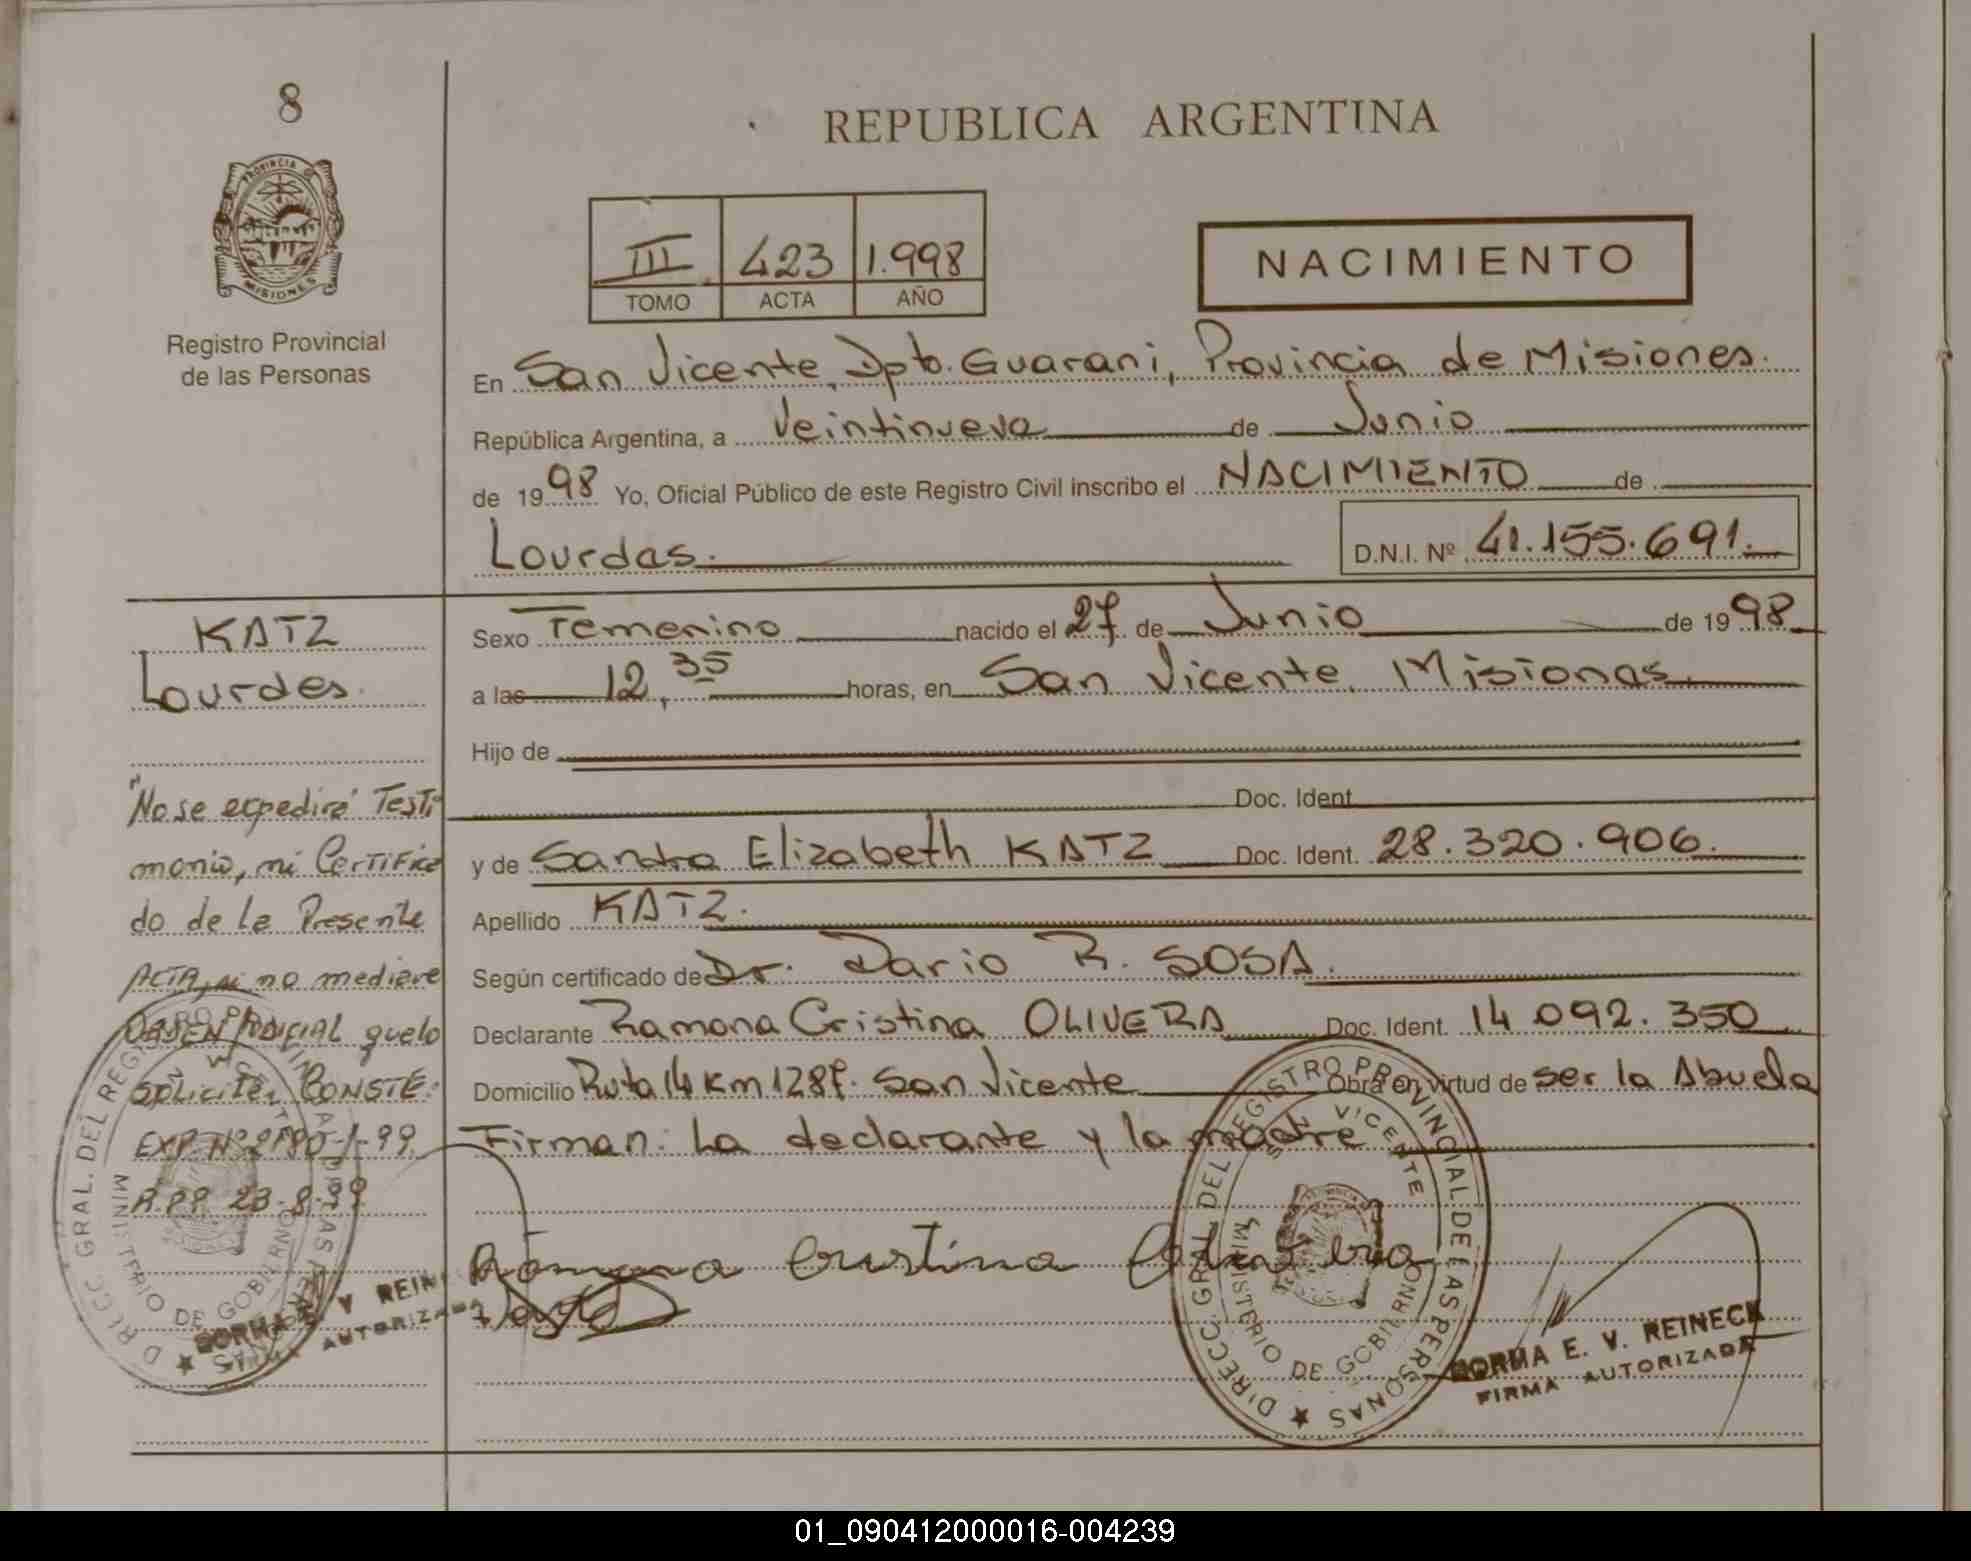 8
REPUBLICA ARGENTINA
PROVINCIA DE
MISIONES
Registro Provincial
de las Personas
III 423 1.998
TOMO ACTA AÑO
NACIMIENTO
En San Vicente, Dpto. Guarani, Provincia de Misiones.
República Argentina, a Veintinueve de Junio
de 1998 Yo, Oficial Público de este Registro Civil inscribo el NACIMIENTO de
Lourdes. D.N.I. Nº 41.155.691.
KATZ
Lourdes.
Sexo Femenino nacido el 27 de Junio de 1998
a las 12,35 horas, en San Vicente, Misiones.
Hijo de
Doc. Ident.
y de Sandra Elizabeth KATZ Doc. Ident. 28.320.906.
Apellido KATZ.
Según certificado de Dr. Dario R. SOSA.
Declarante Ramona Cristina OLIVERA Doc. Ident. 14.092.350
Domicilio Ruta 14 Km 1287. San Vicente Obra en virtud de ser la Abuela
Firman: La declarante y la madre
"No se expedirá Testi
monio, ni Certifica
do de la Presente
ACTA, si no mediare
ORDEN JUDICIAL que lo
solicite. CONSTE:
EXP. Nº 2180-1-99
R.P.P. 23-8-99
Ramona Cristina Olivera
DIRECC. GRAL. DEL REGISTRO PROVINCIAL DE LAS PERSONAS
SAN VICENTE
MINISTERIO DE GOBIERNO
NORMA E. V. REINECK
FIRMA AUTORIZADA
DIRECC. GRAL. DEL REGISTRO PROVINCIAL DE LAS PERSONAS
SAN VICENTE
MINISTERIO DE GOBIERNO
NORMA E. V. REINECK
FIRMA AUTORIZADA
01_090412000016-004239